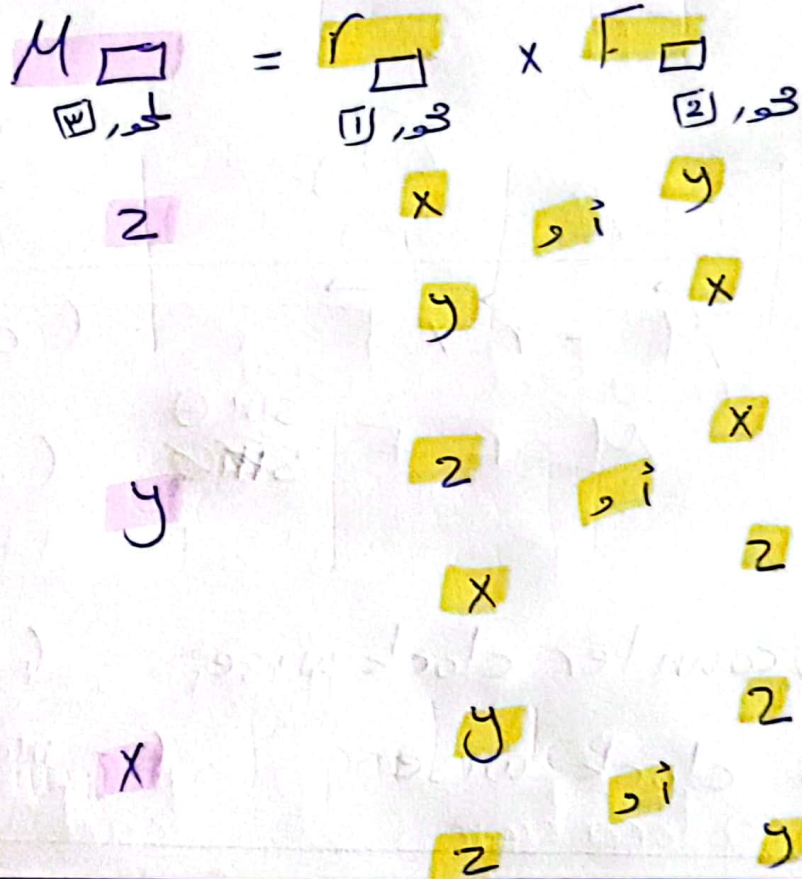 M□ = r□ x F□
محور [٣] محور [1] محور [2]
z x أو y
y x
y z أو x
x z
x y أو z
z y